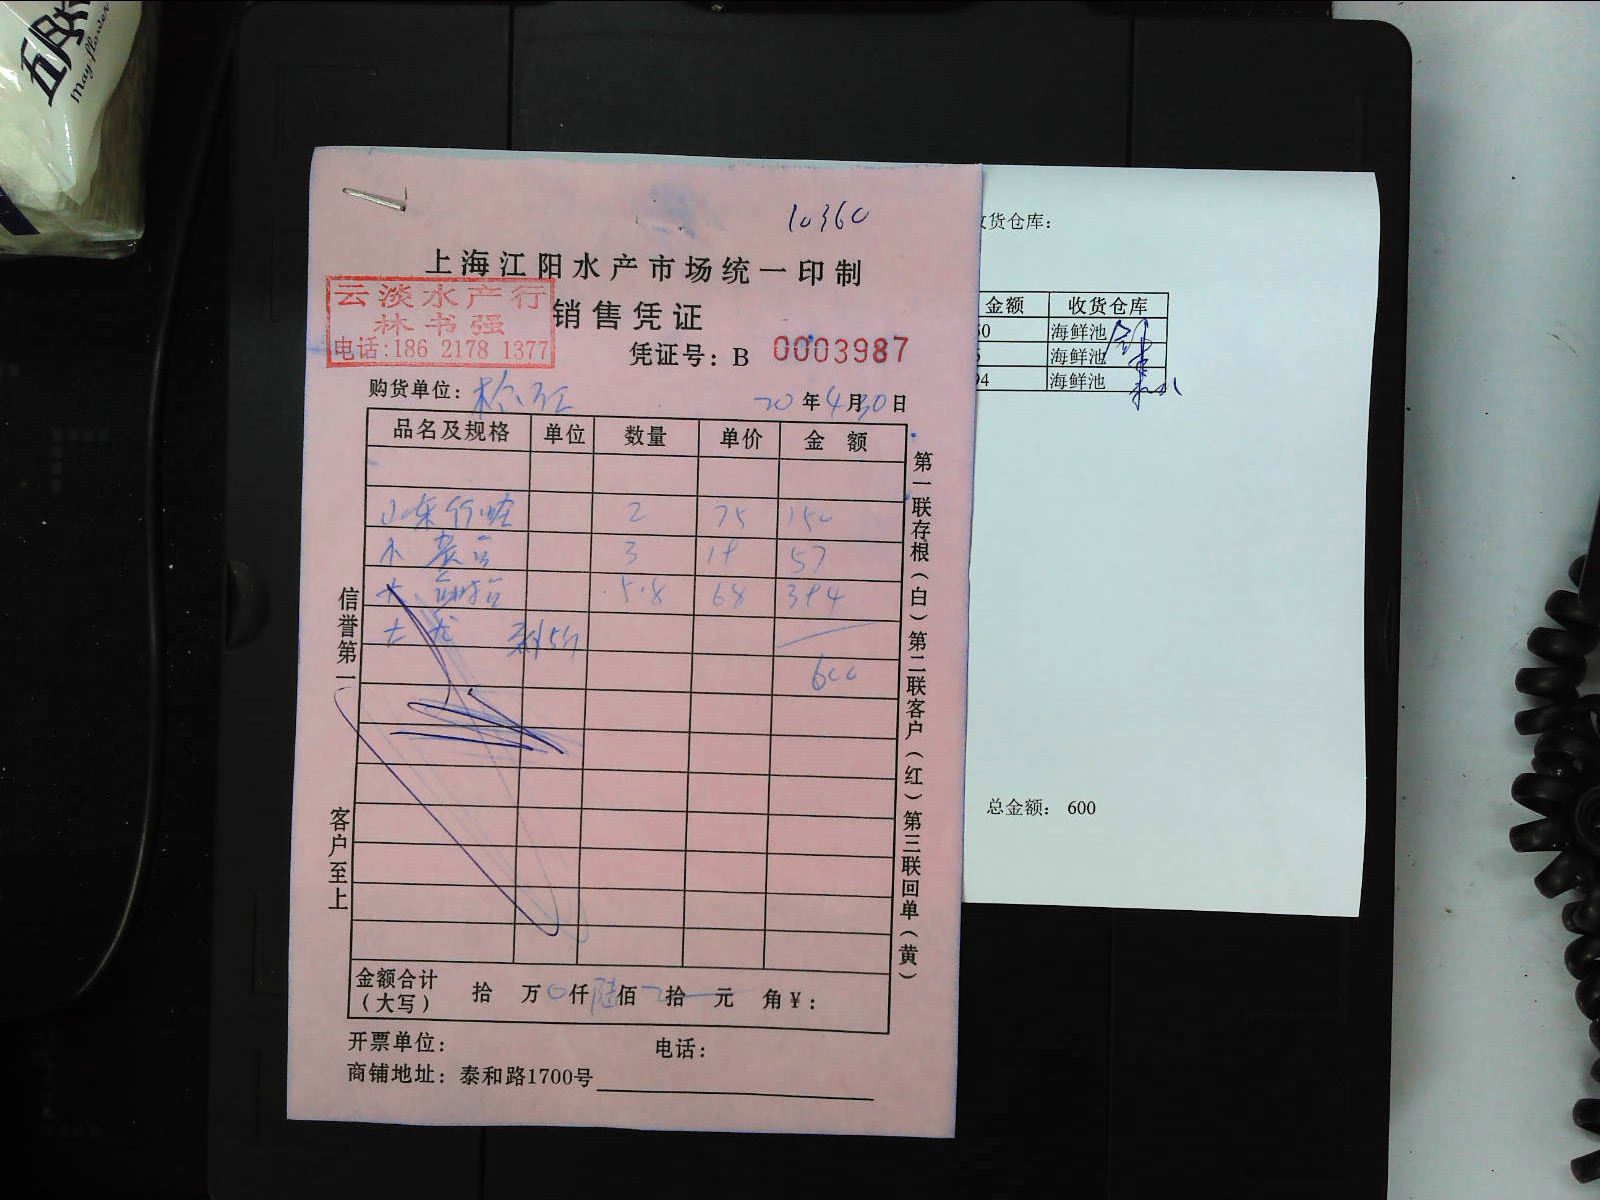 五月
May flower
10360
上海江阳水产市场统一印制
云淡水产行
林书强
电话:186 2178 1377
销售凭证
凭证号：B 0003987
购货单位：
20 年 4 月 30 日
品名及规格 单位 数量 单价 金 额
山东 2 75 150
小 3 19 57
大 5.8 68 394
大龙
600
金额合计（大写） 拾 万 0 仟 陆 佰 拾 元 角 ¥：
开票单位： 电话：
商铺地址：泰和路1700号
信誉第一
客户至上
第一联存根（白）第二联客户（红）第三联回单（黄）
货仓库：
金额 收货仓库
0 海鲜池
海鲜池
94 海鲜池
总金额： 600